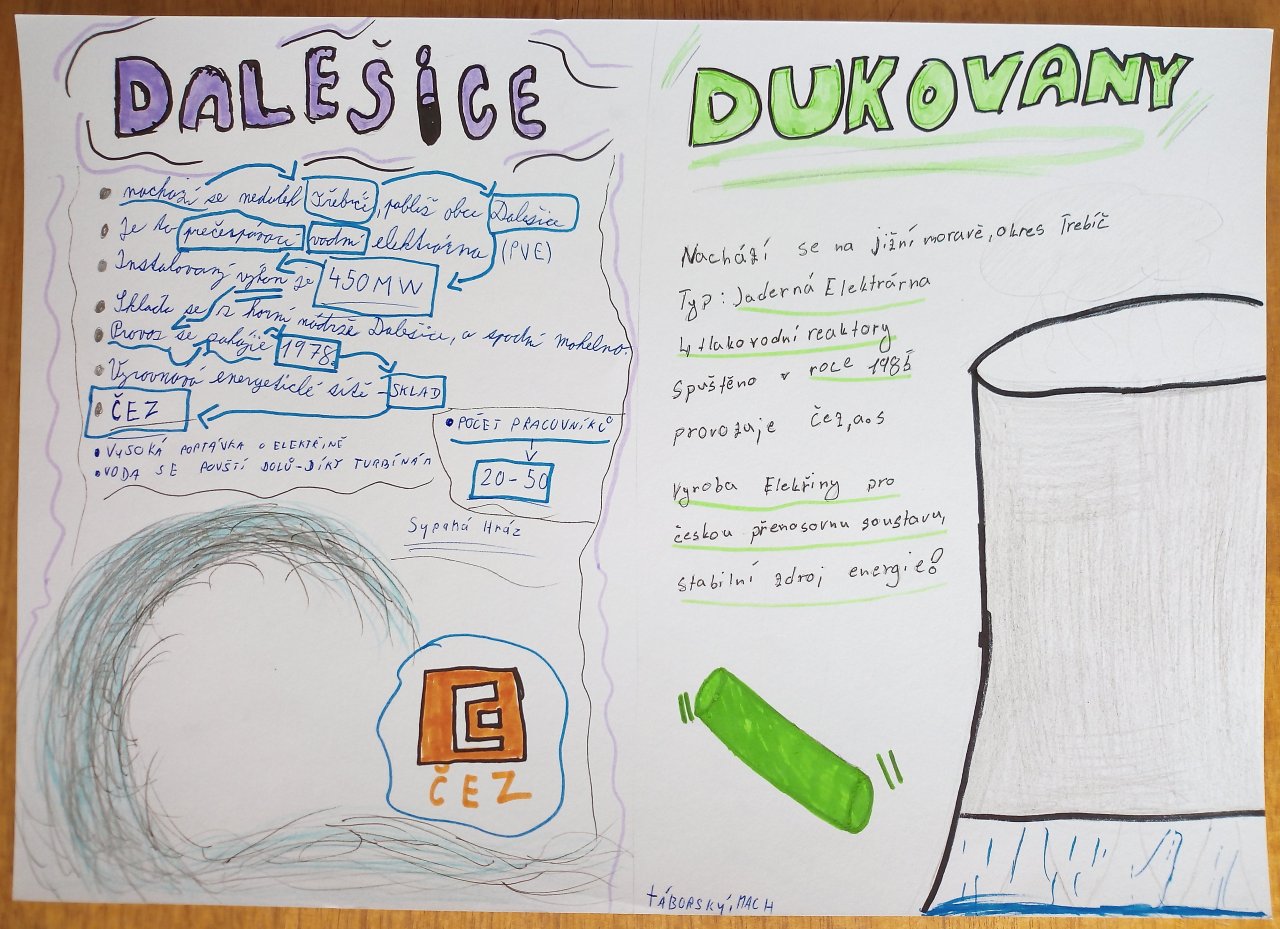 DALEŠICE
nachází se nedalek Třebíči, poblíž obce Dalešice
Je to přečerpávací vodní elektrárna (PVE)
Instalovaný výkon je 450MW
Skládá se z horní nádrže Dalešice, a spodní mohelno.
Provoz se zahájil 1978.
Vyrovnává energetické sítě - SKLAD
ČEZ
VYSOKÁ POPTÁVKA O ELEKTŘINĚ
VODA SE POUŠTÍ DOLŮ-DÍKY TURBÍNÁM
POČET PRACOVNÍKŮ
20-50
Sypaná Hráz
ČEZ
DUKOVANY
Nachází se na jižní moravě, okres Třebíč
Typ: Jaderná Elektrárna
4 tlakovodní reaktory
Spuštěno v roce 1985
provozuje Čez, a.s
Vyroba Elekřiny pro
českou přenosovnu soustavu,
stabilní zdroj energie!
TÁBORSKÝ, MACH